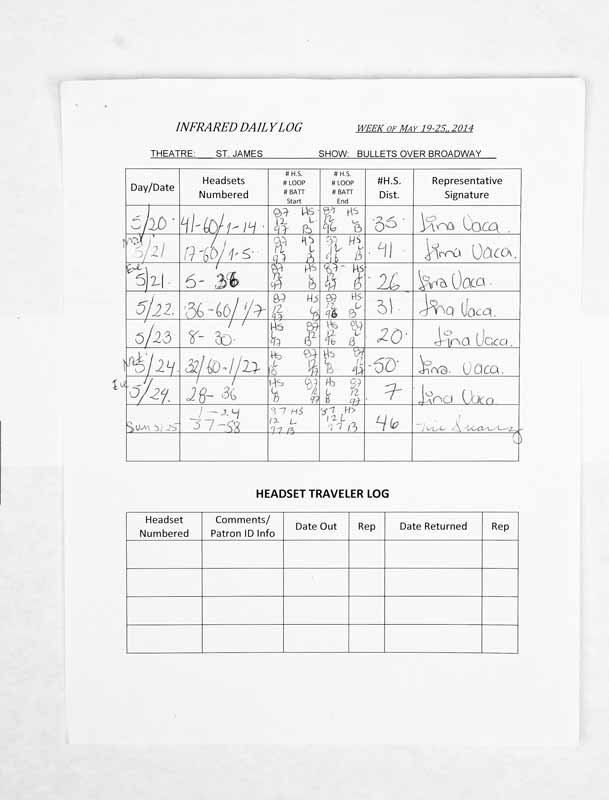 INFRARED DAILY LOG WEEK OF MAY 19-25,, 2014
THEATRE: ST. JAMES SHOW: BULLETS OVER BROADWAY
Day/Date Headsets Numbered # H.S. # LOOP # BATT Start # H.S. # LOOP # BATT End #H.S. Dist. Representative Signature
5/20 41-60/1-14 87 HS 12 L 97 B 87 HS 12 L 96 B 35 Lina Vaca.
Mat 5/21 17-60/1-5 87 HS 12 L 97 B 87 HS 12 L 97 B 41 Lina Vaca.
Eve 5/21 5-36 87 HS 12 L 97 B 87 HS 12 L 97 B 26 Lina Vaca.
5/22 36-60/1/7 87 HS 12 L 97 B 87 HS 12 L 96 B 31 Lina Vaca.
5/23 8-30 HS 87 L 12 97 B HS 87 L 12 96 B 20 Lina Vaca.
Mat 5/24 32/60-1/27 HS 87 L 12 B 97 HS 87 L 12 B 97 50 Lina Vaca.
Eve 5/24 28-36 HS 87 L 12 B 97 HS 87 L 12 B 97 7 Lina Vaca
Sun 5/25 1-24 37-58 87 HS 12 L 97 B 87 HS 12 L 97 B 46 Suarez
HEADSET TRAVELER LOG
Headset Numbered Comments/ Patron ID Info Date Out Rep Date Returned Rep